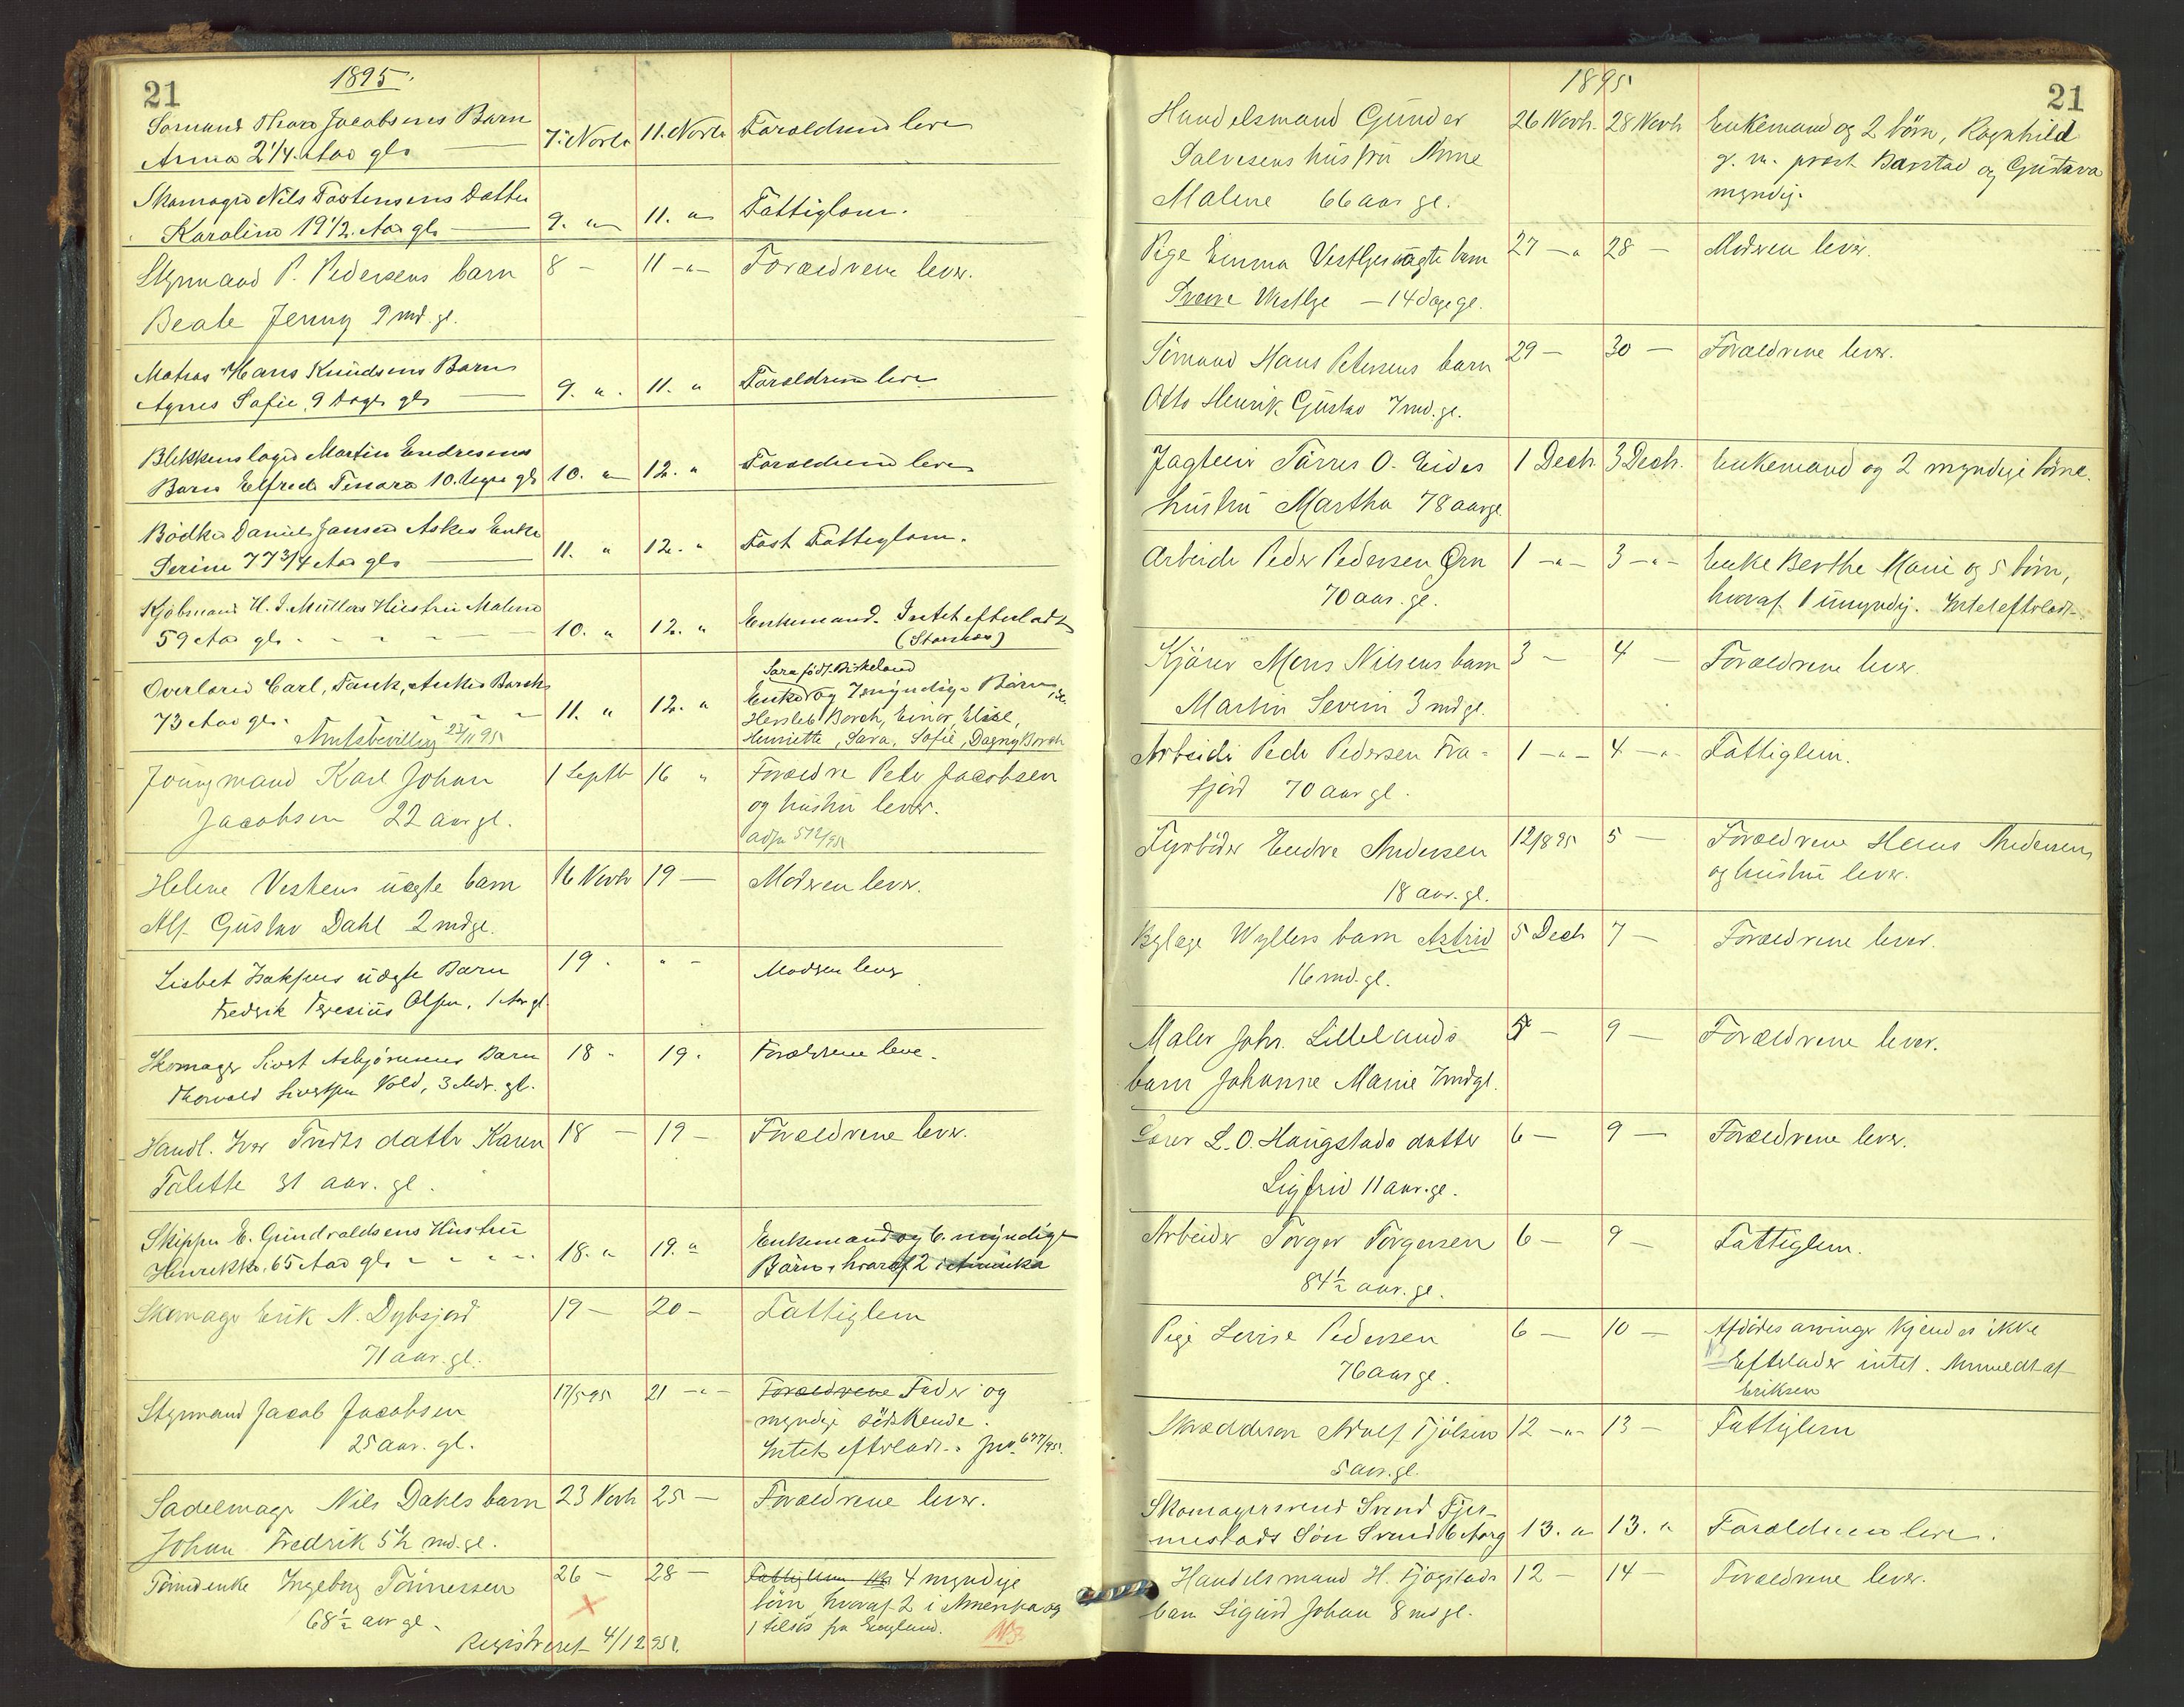 21
1895.
Sømand Thore Jacobsens Barn
Anna 2 1/4 Aar gl.
7. Novbr
11. Novbr
Foraldrene leve
Skomager Nils Tostensens Datter
Karoline 19 1/2 Aar gl.
9. "
11. "
Fattiglem.
Styrmand P. Pedersens barn
Beate Jenny 9 md. gl.
8 -
11 -"-
Forældrene lever.
Matros Hans Knudsens Barn
Agnes Sofie 9 Dage gl
9. "
11. "
Foraldrene leve
Blikkenslager Martin Endresens
Barn Elfreda Tenora 10. Uger gl
10. "
12. "
Foraldrene leve
Bødker Daniel Jansen Askes Enke
Serine 77 3/4 Aar gl.
11. "
12. "
Fast Fattiglem.
Kjøbmand H. J. Müllers Hustru Malene
59 Aar gl.
10. "
12. "
Enkemand. Intet efterladt
Overlærer Carl, Fasck, Anker Borch
73 Aar gl.
Amtsbevilling 23/11 95
11. "
12. "
Sara født Birkeland
Enke og 7 myndige Børn,
Hersleb Borch, Einar, Elise,
Henriette, Sara, Sofie, Dagny Borch
Jungmand Karl Johan
Jacobsen 22 aar gl.
1 Septb
16 "
Forældre Peter Jacobsen
og hustru lever.
Helene Veskens uægte barn
Alf Gustav Dahl 2 md gl.
16 Novbr
19 —
Moderen lever.
Lisbet Isaksens uægte Barn
Fredrik Teresius Olsen, 1 Aar gl.
19 -
" -
Moderen lever
Skomager Sivert Asbjørnsens Barn
Thorvald Sivertsen Vold, 3 Mdr. gl.
18 -
19 -
Forældrene leve.
Handl. Ivar Tvedts datter Karen
Talette 31 aar. gl.
18 —
19 —
Forældrene lever.
Skipper E. Gundvaldsens Hustru
Henrikke, 65 Aar gl.
18. "
19. "
Enkemand og 6. myndige
Børn, hvoraf 2 i Amerika
Skomager Erik N. Dybsjord
71 aar. gl.
19 —
20 —
Fattiglem
Styrmand Jacob Jacobsen
25 aar. gl.
17/5 95
21 -"-
Forældrene Fader og
myndige søskende.
Intet efterladt. Jnr. 677/95.
Sadelmager Nils Dahls barn
Johan Fredrik 5 1/2 md. gl.
23 Novbr
25 —
Forældrene lever.
Tømdenke Ingeborg Tönnessen
68 1/2 aar gl.
Registreret 4/12 95
26 —
28 —
Fattiglem 4 myndige
børn, hvoraf 2 i Amerika og
1 tilsjøs fra England.
NB.
21
1895
Handelsmand Gunder
Salvesens hustru Anne
Malene 66 aar gl.
26 Novb.
28 Novb
Enkemand og 2 børn, Ragnhild
g. m. prest Barstad og Gustava
myndig.
Pige Emma Vestlyes uægte barn
Sverre Vestlye — 14 dage gl.
27 -"
28 -
Moderen lever.
Sömand Hans Petersens barn
Otto Henrik Gustav 7 md. gl.
29 —
30 —
Forældrene lever.
Jagteier Tørres O. Eides
hustru Martha 78 aar gl
1 Decb
3 Decb.
Enkemand og 2 myndige børn.
Arbeider Peder Pedersen Ørn
70 aar. gl.
1 -"-
3 -"-
Enke Berthe Marie og 5 børn,
hvoraf 1 umyndig. Intet efterladt
Kjører Mons Nilsens barn
Martin Severin 3 md gl.
3 —
4 —
Forældrene lever.
Arbeider Peder Pedersen Fra-
fjord 70 aar gl.
1 -"-
4 -"-
Fattiglem.
Fyrbøder Endre Andersen
18 aar. gl.
12/8 95
5 —
Forældrene Hans Andersen
og hustru lever.
Bylæge Wyllers barn Astrid
16 md. gl.
5 Decb
7 —
Forældrene lever.
Maler Johs. Lillelands
barn Johanne Marie 7 md gl.
5 —
9 —
Forældrene lever.
Lærer L. O. Haugstads datter
Sigfrid 11 aar. gl.
6 —
9 —
Forældrene lever.
Arbeider Torger Torgersen
84 1/2 aar. gl.
6 —
9 —
Fattiglem.
Pige Lovise Pedersen
76 aar gl.
6 —
10 —
Afdødes arvinger kjendes ikke
Efterlader intet. Anmeldt af
Eriksen
Skræddersøn Adolf Fjölsen
5 aar. gl.
12 -"-
13 —
Fattiglem
Skomagersvend Svend Fjer-
mestads Søn Svend 6 Aar g
13. "
13. "
Foraldrene leve.
Handelsmand H. Fjogstads
barn Sigurd Johan 8 md gl.
12 —
14 —
Forældrene lever.